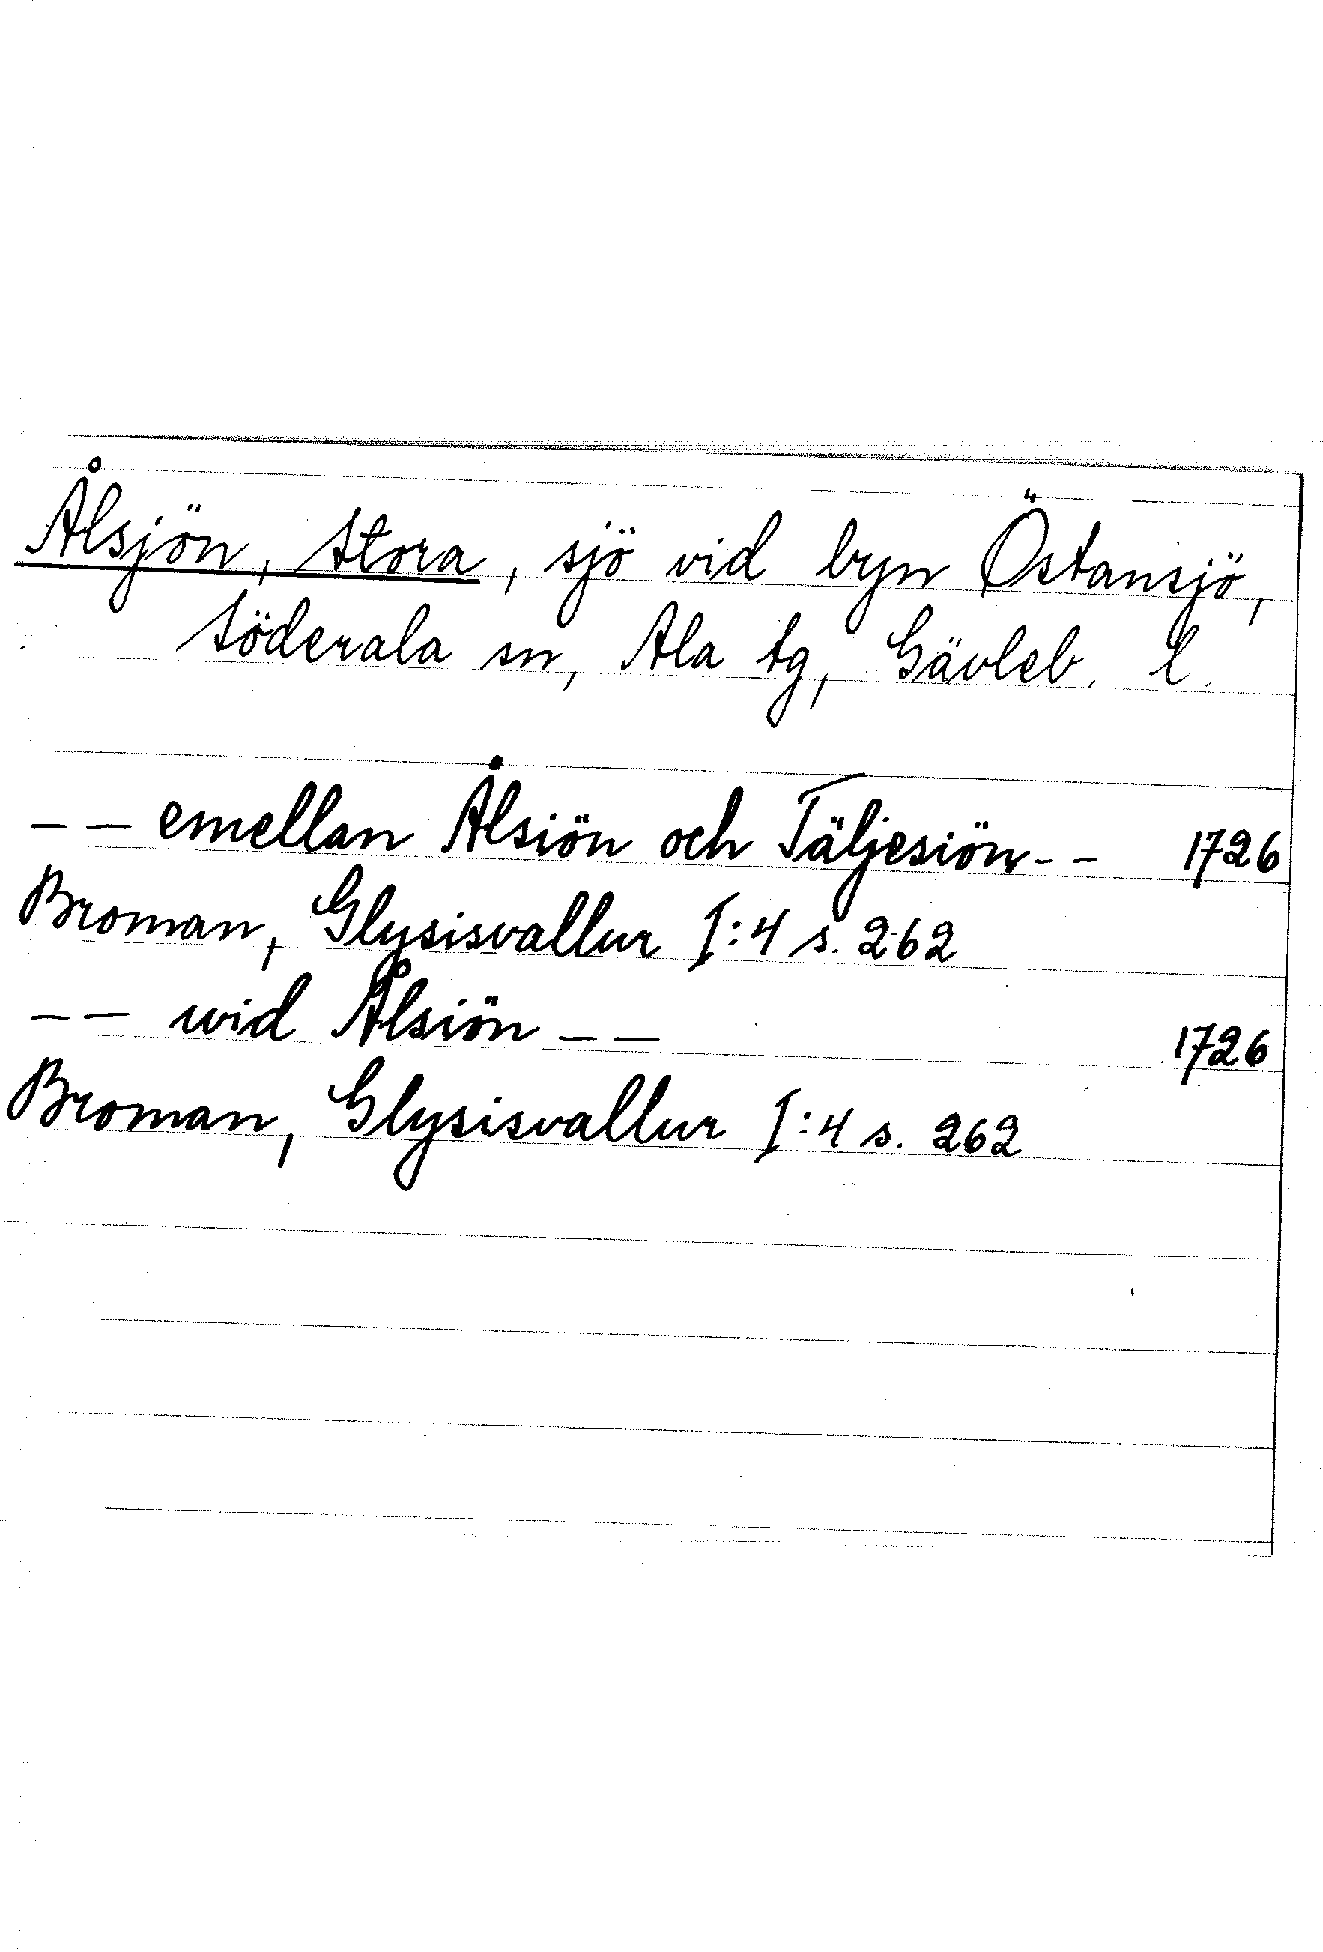 Ålsjön, Stora, sjö vid byn Östansjö,
Söderala sn, Ala tg, Gävleb. l.
-- emellan Ålsiön och Täljesiön -- 1726
Broman, Glysisvallur I:4 s. 262
-- wid Ålsiön -- 1726
Broman, Glysisvallur I:4 s. 262